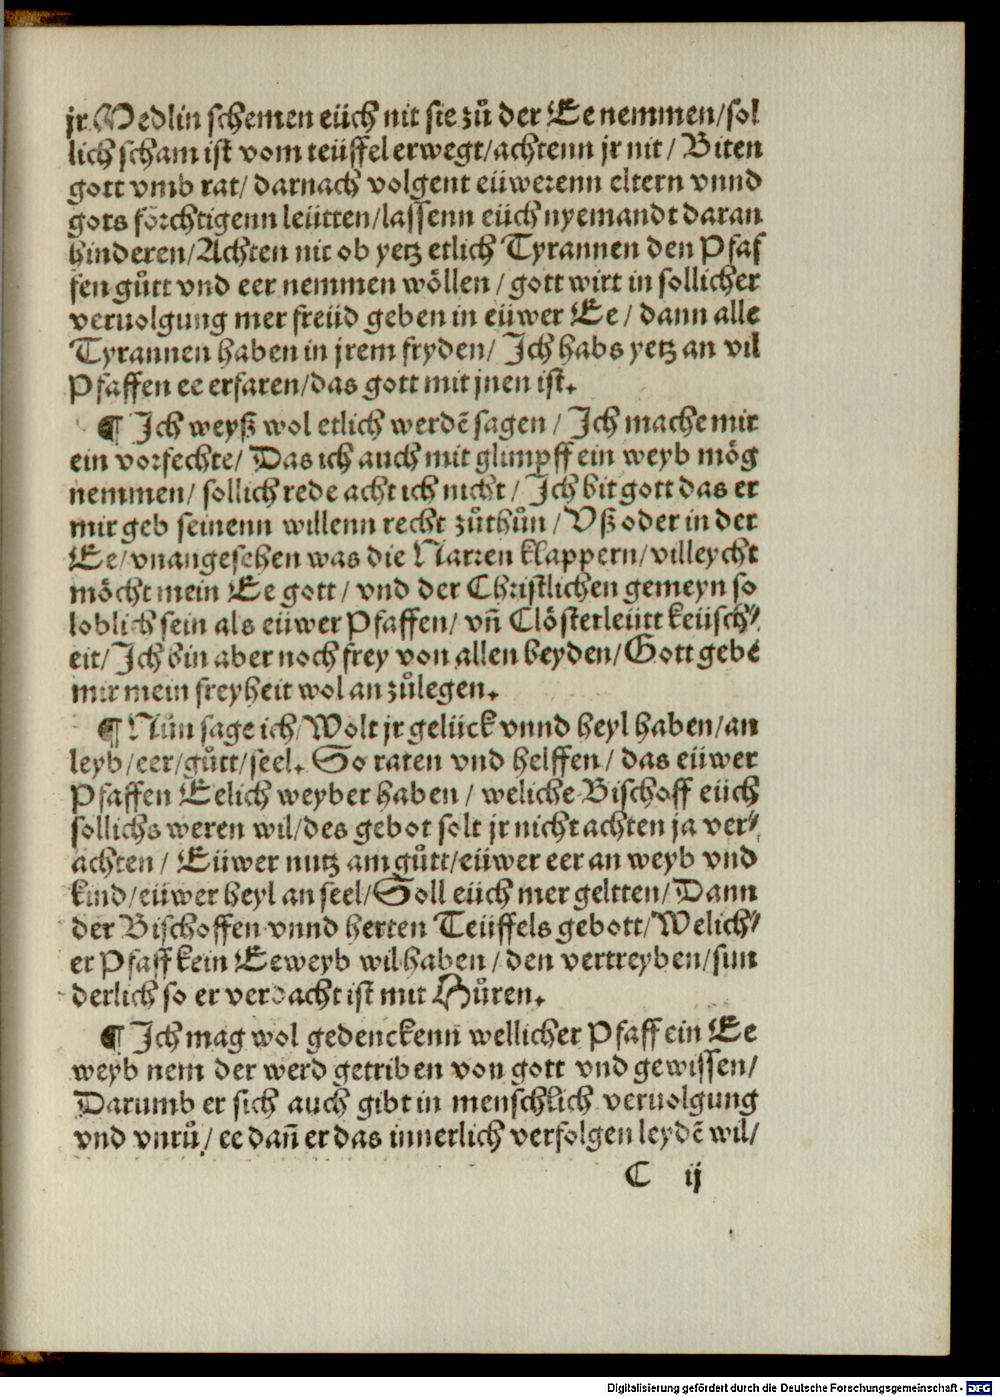 jr Medlin schemen eüch nit sie zů der Ee nemmen/sol
lich scham ist vom teüffel erwegt/achtenn jr nit/ Biten
gott vmb rat/ darnach volgent eüwerenn eltern vnnd
gots förchtigenn leütten/lassenn eüch nyemandt daran
hinderen/Achten nit ob yetz etlich Tyrannen den Pfaf
fen gůtt vnd eer nemmen wöllen/ gott wirt in sollicher
veruolgung mer freüd geben in eüwer Ee/ dann alle
Tyrannen haben in jrem fryden/ Ich habs yetz an vil
Pfaffen ee erfaren/das gott mit jnen ist.
¶ Ich weyß wol etlich werdē sagen/ Ich mache mir
ein vorfechte/ Das ich auch mit glimpff ein weyb mög
nemmen/ sollich rede acht ich nicht/ Ich bit gott das er
mir geb seinenn willenn recht zůthůn/ Vß oder in der
Ee/vnangesehen was die Narren klappern/villeycht
möcht mein Ee gott/ vnd der Christlichen gemeyn so
loblich sein als eüwer Pfaffen/ vñ Clösterleütt keüsch⸗
eit/Ich bin aber noch frey von allen beyden/Gott gebe
mir mein freyheit wol an zůlegen.
¶ Nůn sage ich/Wolt jr gelück vnnd heyl haben/an
leyb/eer/gůtt/seel. So raten vnd helffen/ das eüwer
Pfaffen Eelich weyber haben/ weliche Bischoff eüch
sollichs weren wil/des gebot solt jr nicht achten ja ver⸗
achten/ Eüwer nutz am gůtt/eüwer eer an weyb vnd
kind/eüwer heyl an seel/Soll eüch mer geltten/Dann
der Bischoffen vnnd herren Teüffels gebott/Welich⸗
er Pfaff kein Eeweyb wil haben/den vertreyben/sun
derlich so er verdacht ist mit Hůren.
¶ Ich mag wol gedenckenn wellicher Pfaff ein Ee
weyb nem der werd getriben von gott vnd gewissen/
Darumb er sich auch gibt in menschlich veruolgung
vnd vnrů/ ee dañ er das innerlich verfolgen leydē wil/
C ij
Digitalisierung gefördert durch die Deutsche Forschungsgemeinschaft - DFG